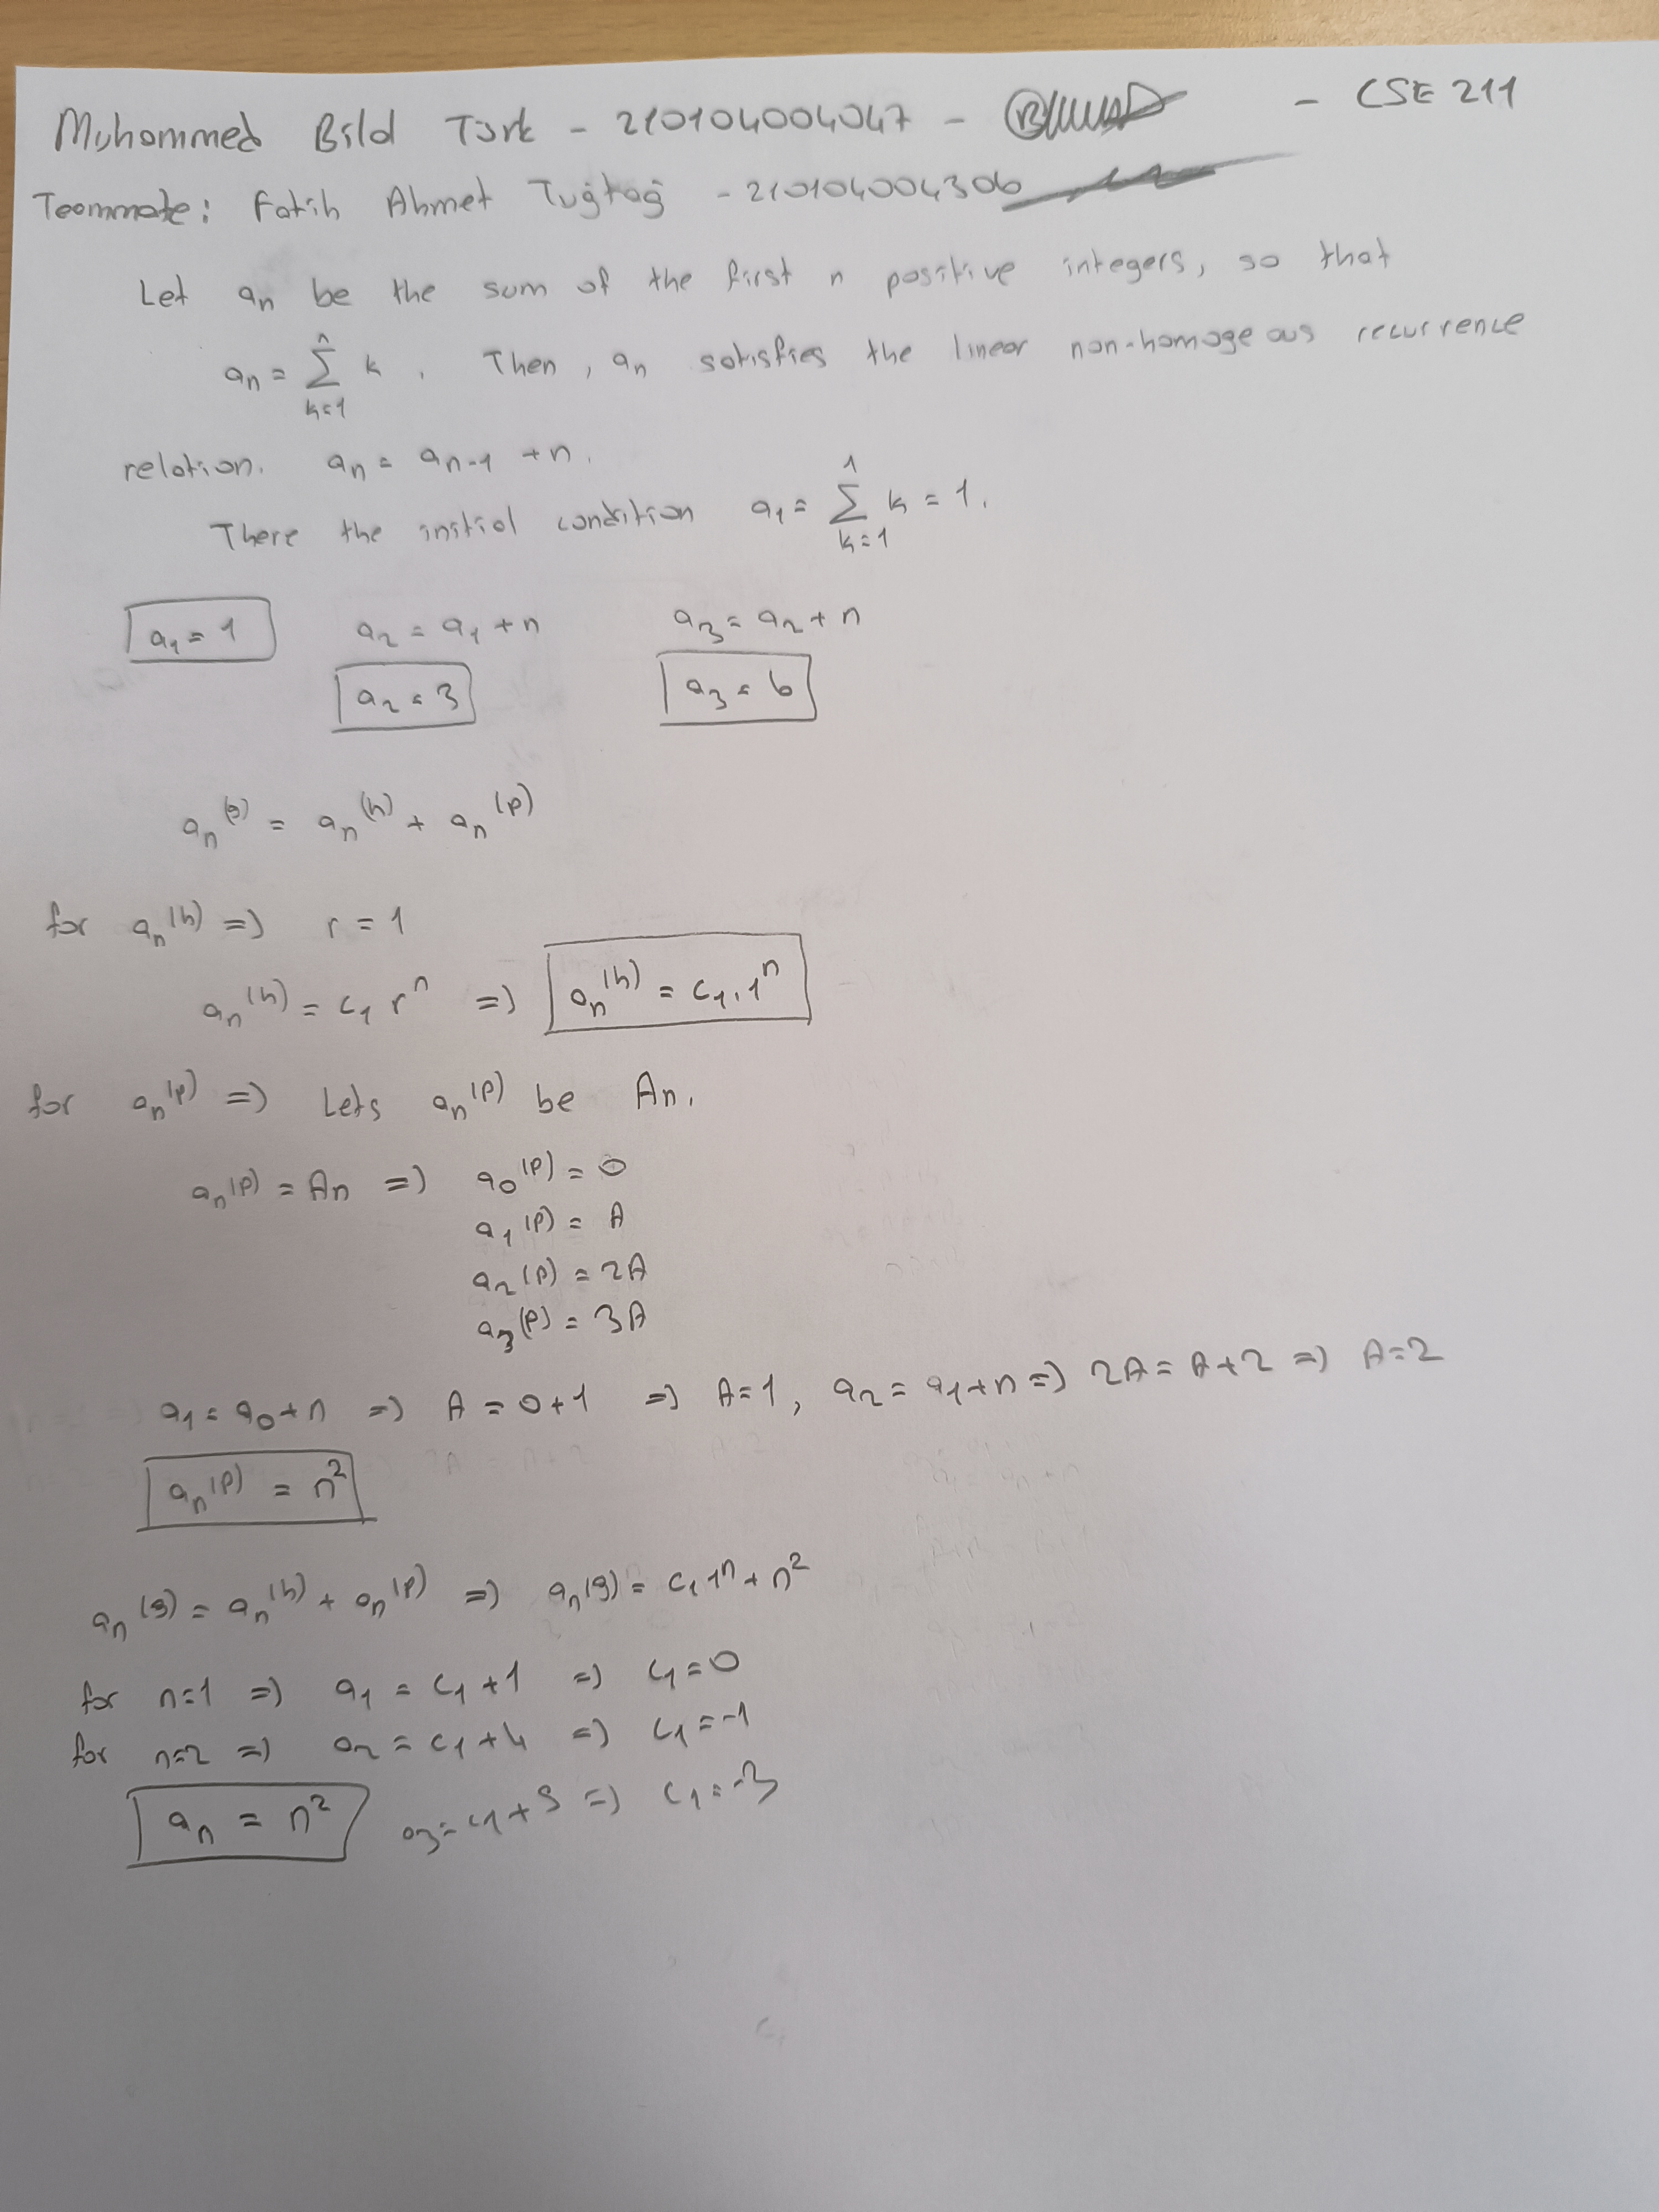 Muhammed Bilal Türk - 210104004047 - - CSE 211
Teammate: Fatih Ahmet Tuğtağ - 210104004306
Let an be the sum of the first n positive integers, so that
an = Σ(k=1, n) k. Then, an satisfies the linear non-homogeous recurrence
relation. an = an-1 + n.
There the initial condition a1 = Σ(k=1, 1) k = 1.
a1 = 1 a2 = a1 + n a3 = a2 + n
a2 = 3 a3 = 6
an^(g) = an^(h) + an^(p)
for an^(h) => r = 1
an^(h) = c1 r^n => an^(h) = c1.1^n
for an^(p) => Lets an^(p) be An.
an^(p) = An => a0^(p) = 0
a1^(p) = A
a2^(p) = 2A
a3^(p) = 3A
a1 = a0 + n => A = 0+1 => A=1, a2 = a1+n => 2A = A+2 => A=2
an^(p) = n^2
an^(g) = an^(h) + an^(p) => an^(g) = c1 1^n + n^2
for n=1 => a1 = c1 + 1 => c1 = 0
for n=2 => a2 = c1 + 4 => c1 = -1
an = n^2 a3 = c1 + 9 => c1 = -3